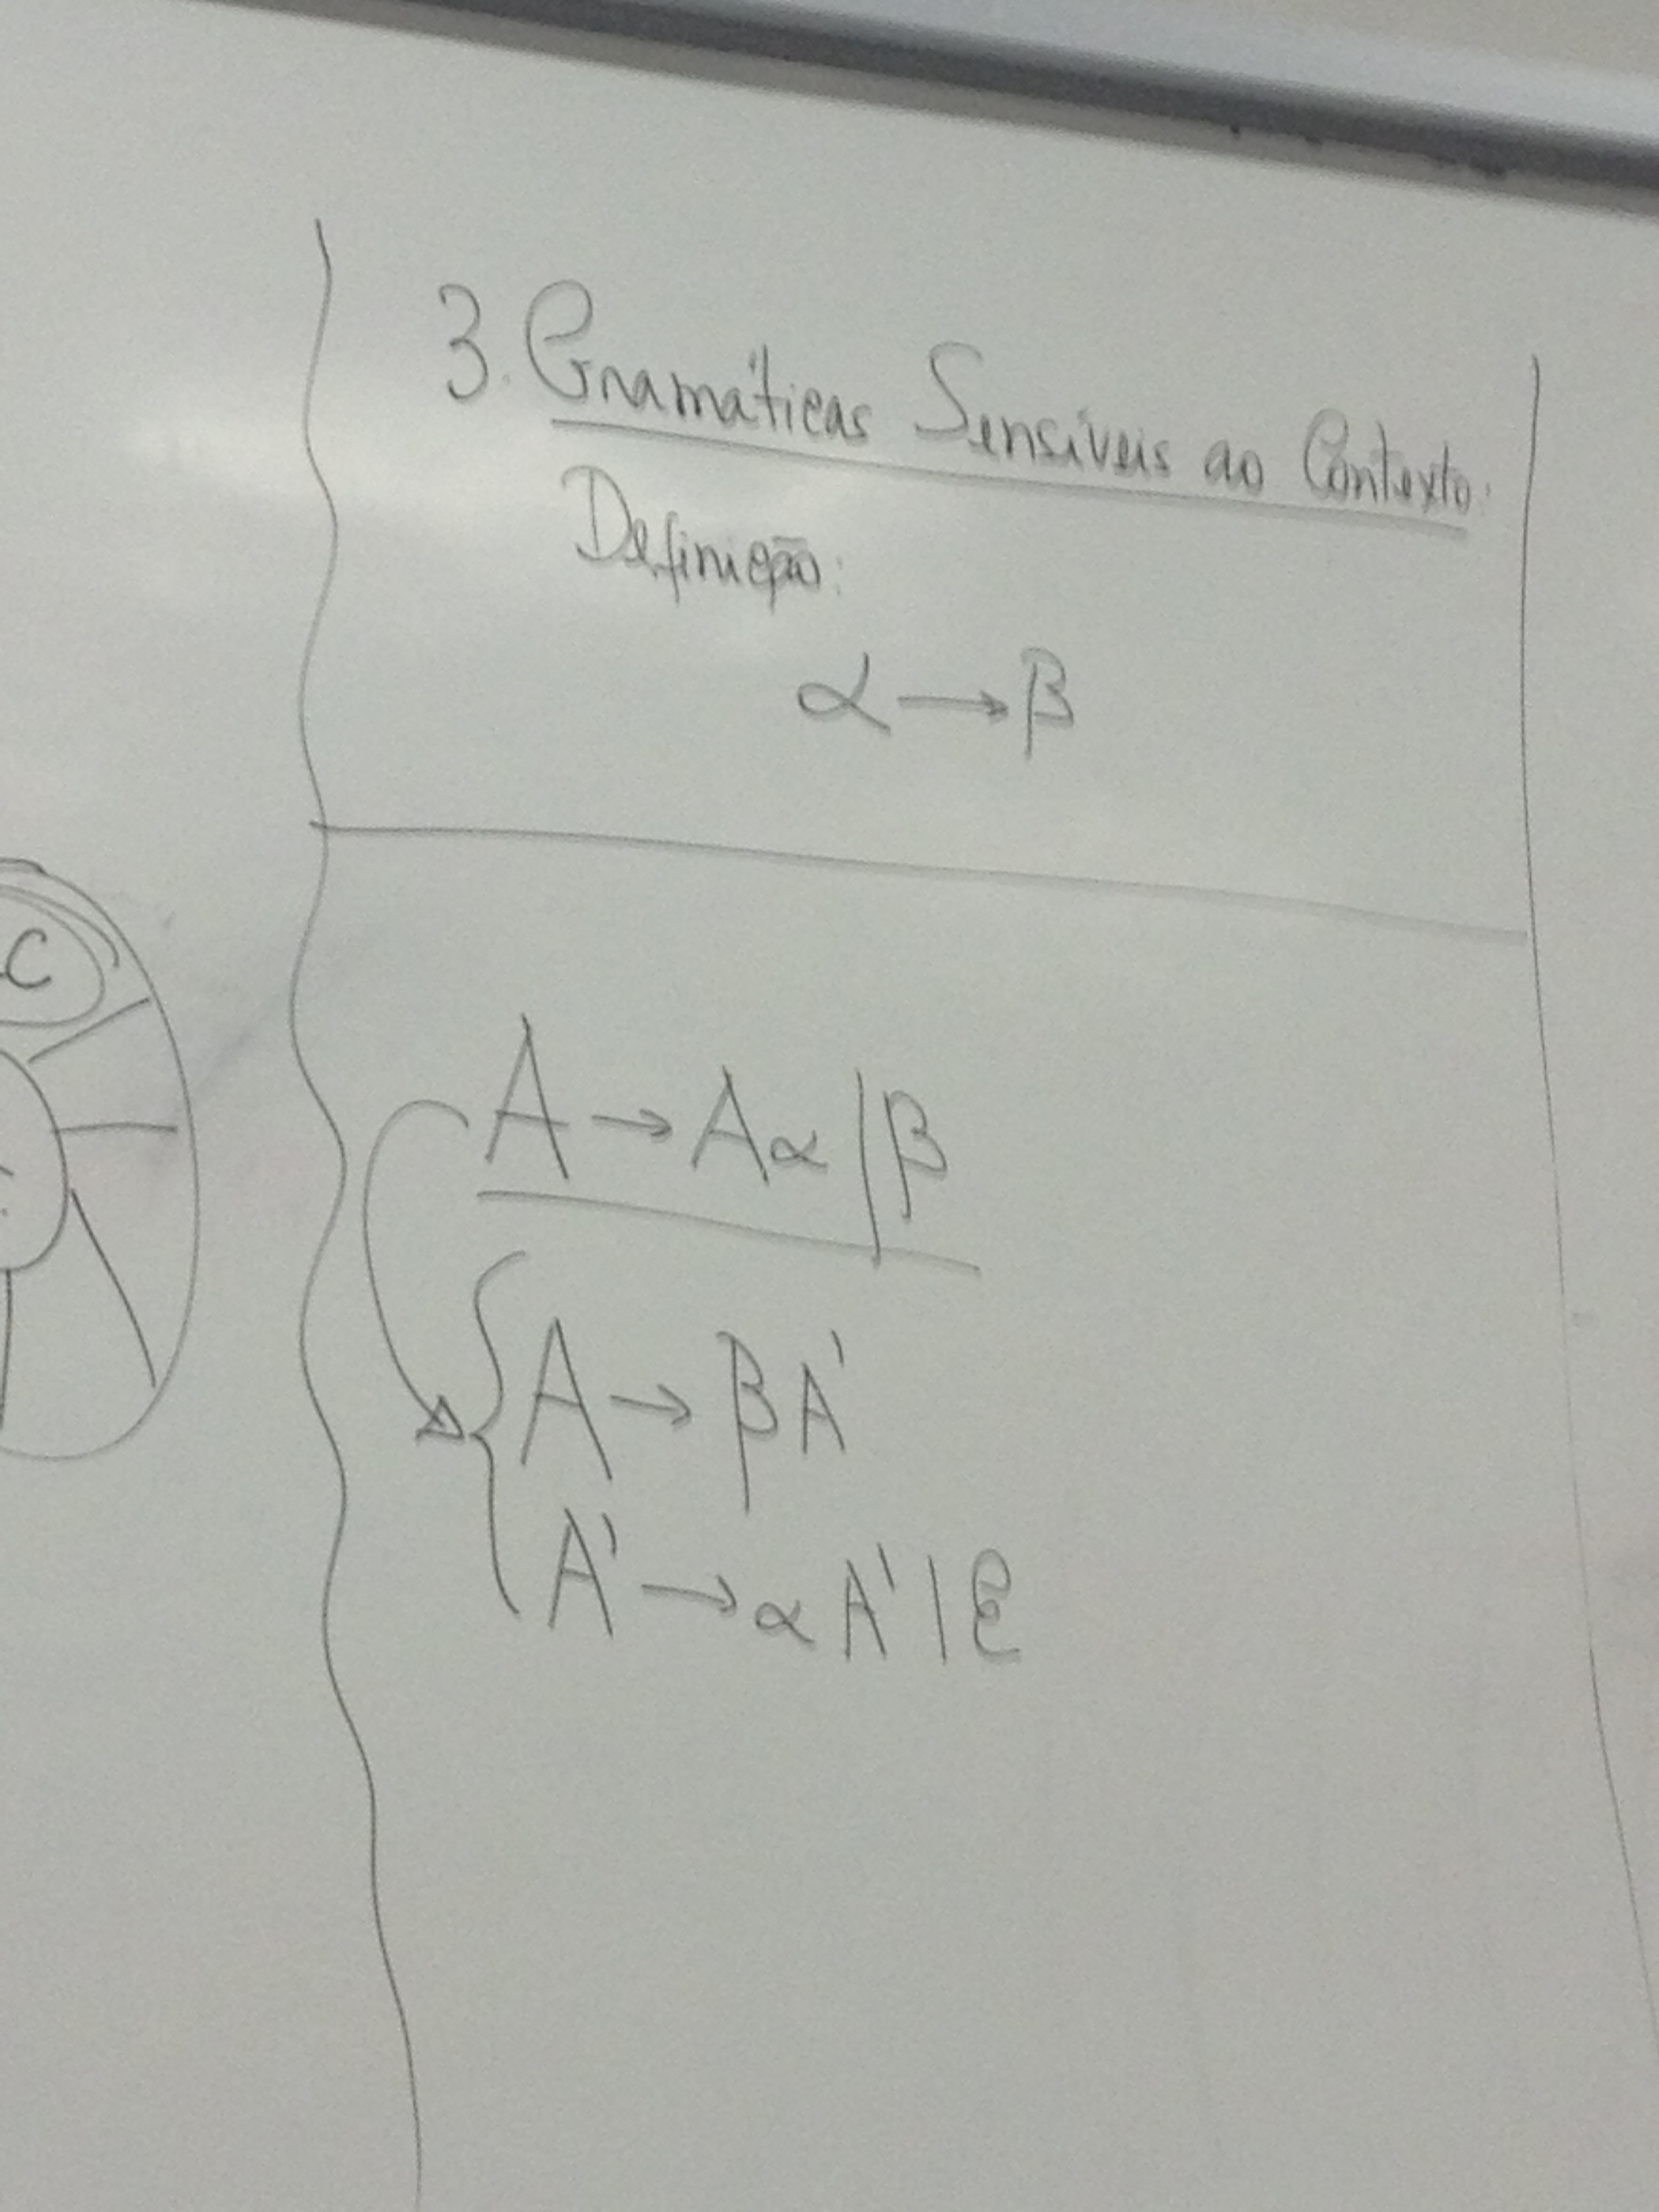 3. Gramáticas Sensíveis ao Contexto.
Definição:
α → β
C
A → Aα | β
A → βA'
A' → αA' | ε